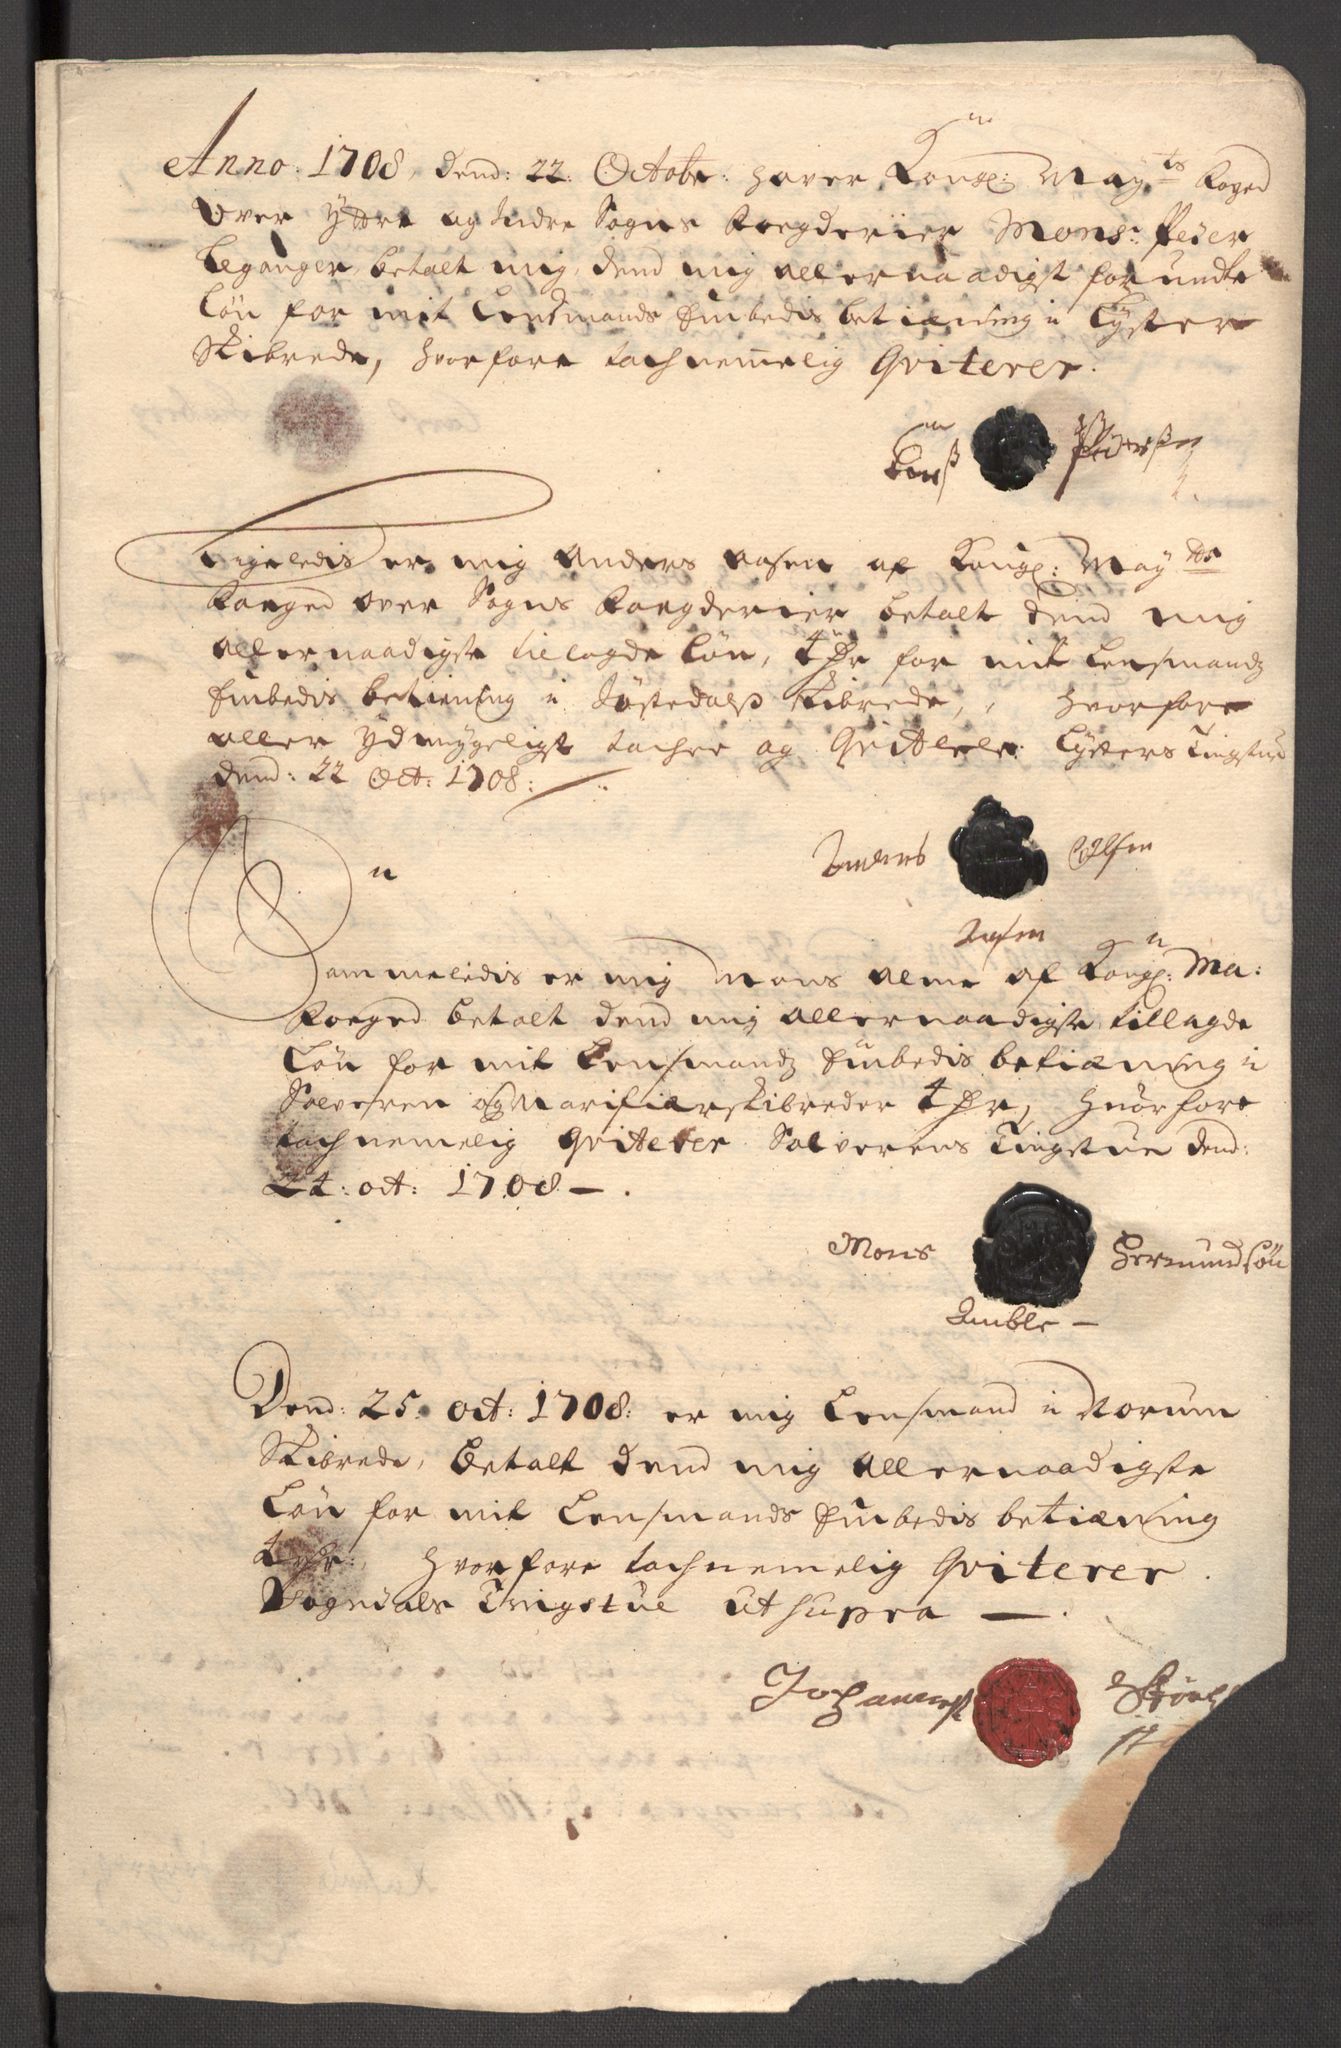 Anno 1708, dend: 22 Octobr: haver Kongl: Mayts Foged
Over Ydre og Indre Sogns Fogderier Mons: Peder
Leganger betalt mig, dend mig allernaadigst forundte
Löu for mit Lensmands Embedis betiæning i Lyster
Skibrede, hvorfore tachnemelig Qviterer.
Larß Pederßen
Ligeledis er mig Anders Aasen af Kongl: Maytts
Foeged over Sogns Fogderier betalt dend mig
allernaadigste tillagde Lön, 4 Dr for mit Lensmandz
Embedis betiening i Jostedalß Skibrede, hvorfore
aller Ydmygeligst tacher og Qviterer Lysters Tingstue
dend: 22 Oct: 1708:
Anders Olsen
Aasen
Sammeledis er mig Mons Amle af Kongl: Ma:
Foeged betalt dend mig allernaadigste tillagde
Lön for mit Lensmandz Embedis betiæning i
Solveren og Marifiær Skibreder 4 Dr, huorfore
tachnemelig Qviterer Solverens Tingstue dend:
24: oct: 1708 — .
Mons Hermundsön
Amble —
Dend: 25 oct: 1708: er mig Lensmand i Norum
Skibrede, betalt dend mig allernaadigste
Lön for mit Lensmands Embedis betiæning
4 Dr: hvorfore tachnemelig Qviterer
Sogndals Tingstue ut supra — .
Johanneß